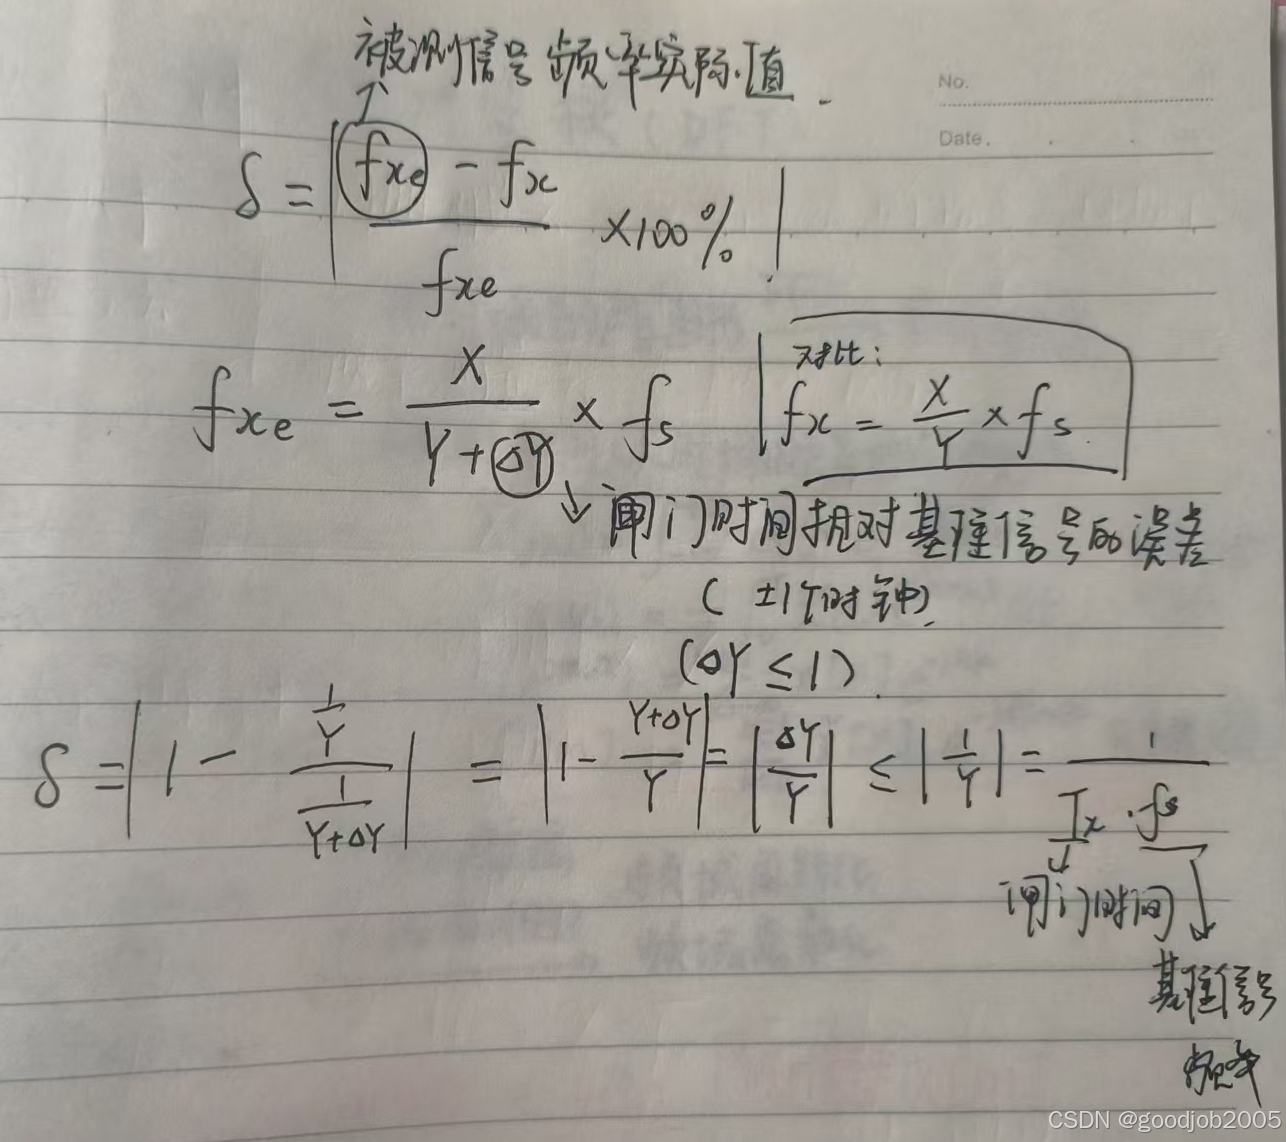 被测信号频率实际值.
No.
Date.
δ = | (fxe - fx) / fxe ×100% |
fxe = X / (Y+ΔY) × fs
对比:
fx = X/Y × fs
闸门时间相对基准信号的误差
(±1个时钟)
(ΔY ≤ 1).
δ = | 1 - (1/Y) / (1/(Y+ΔY)) | = | 1 - (Y+ΔY)/Y | = | ΔY/Y | ≤ | 1/Y | = 1 / (Tx · fs)
闸门时间
基准信号
频率
CSDN @goodjob2005